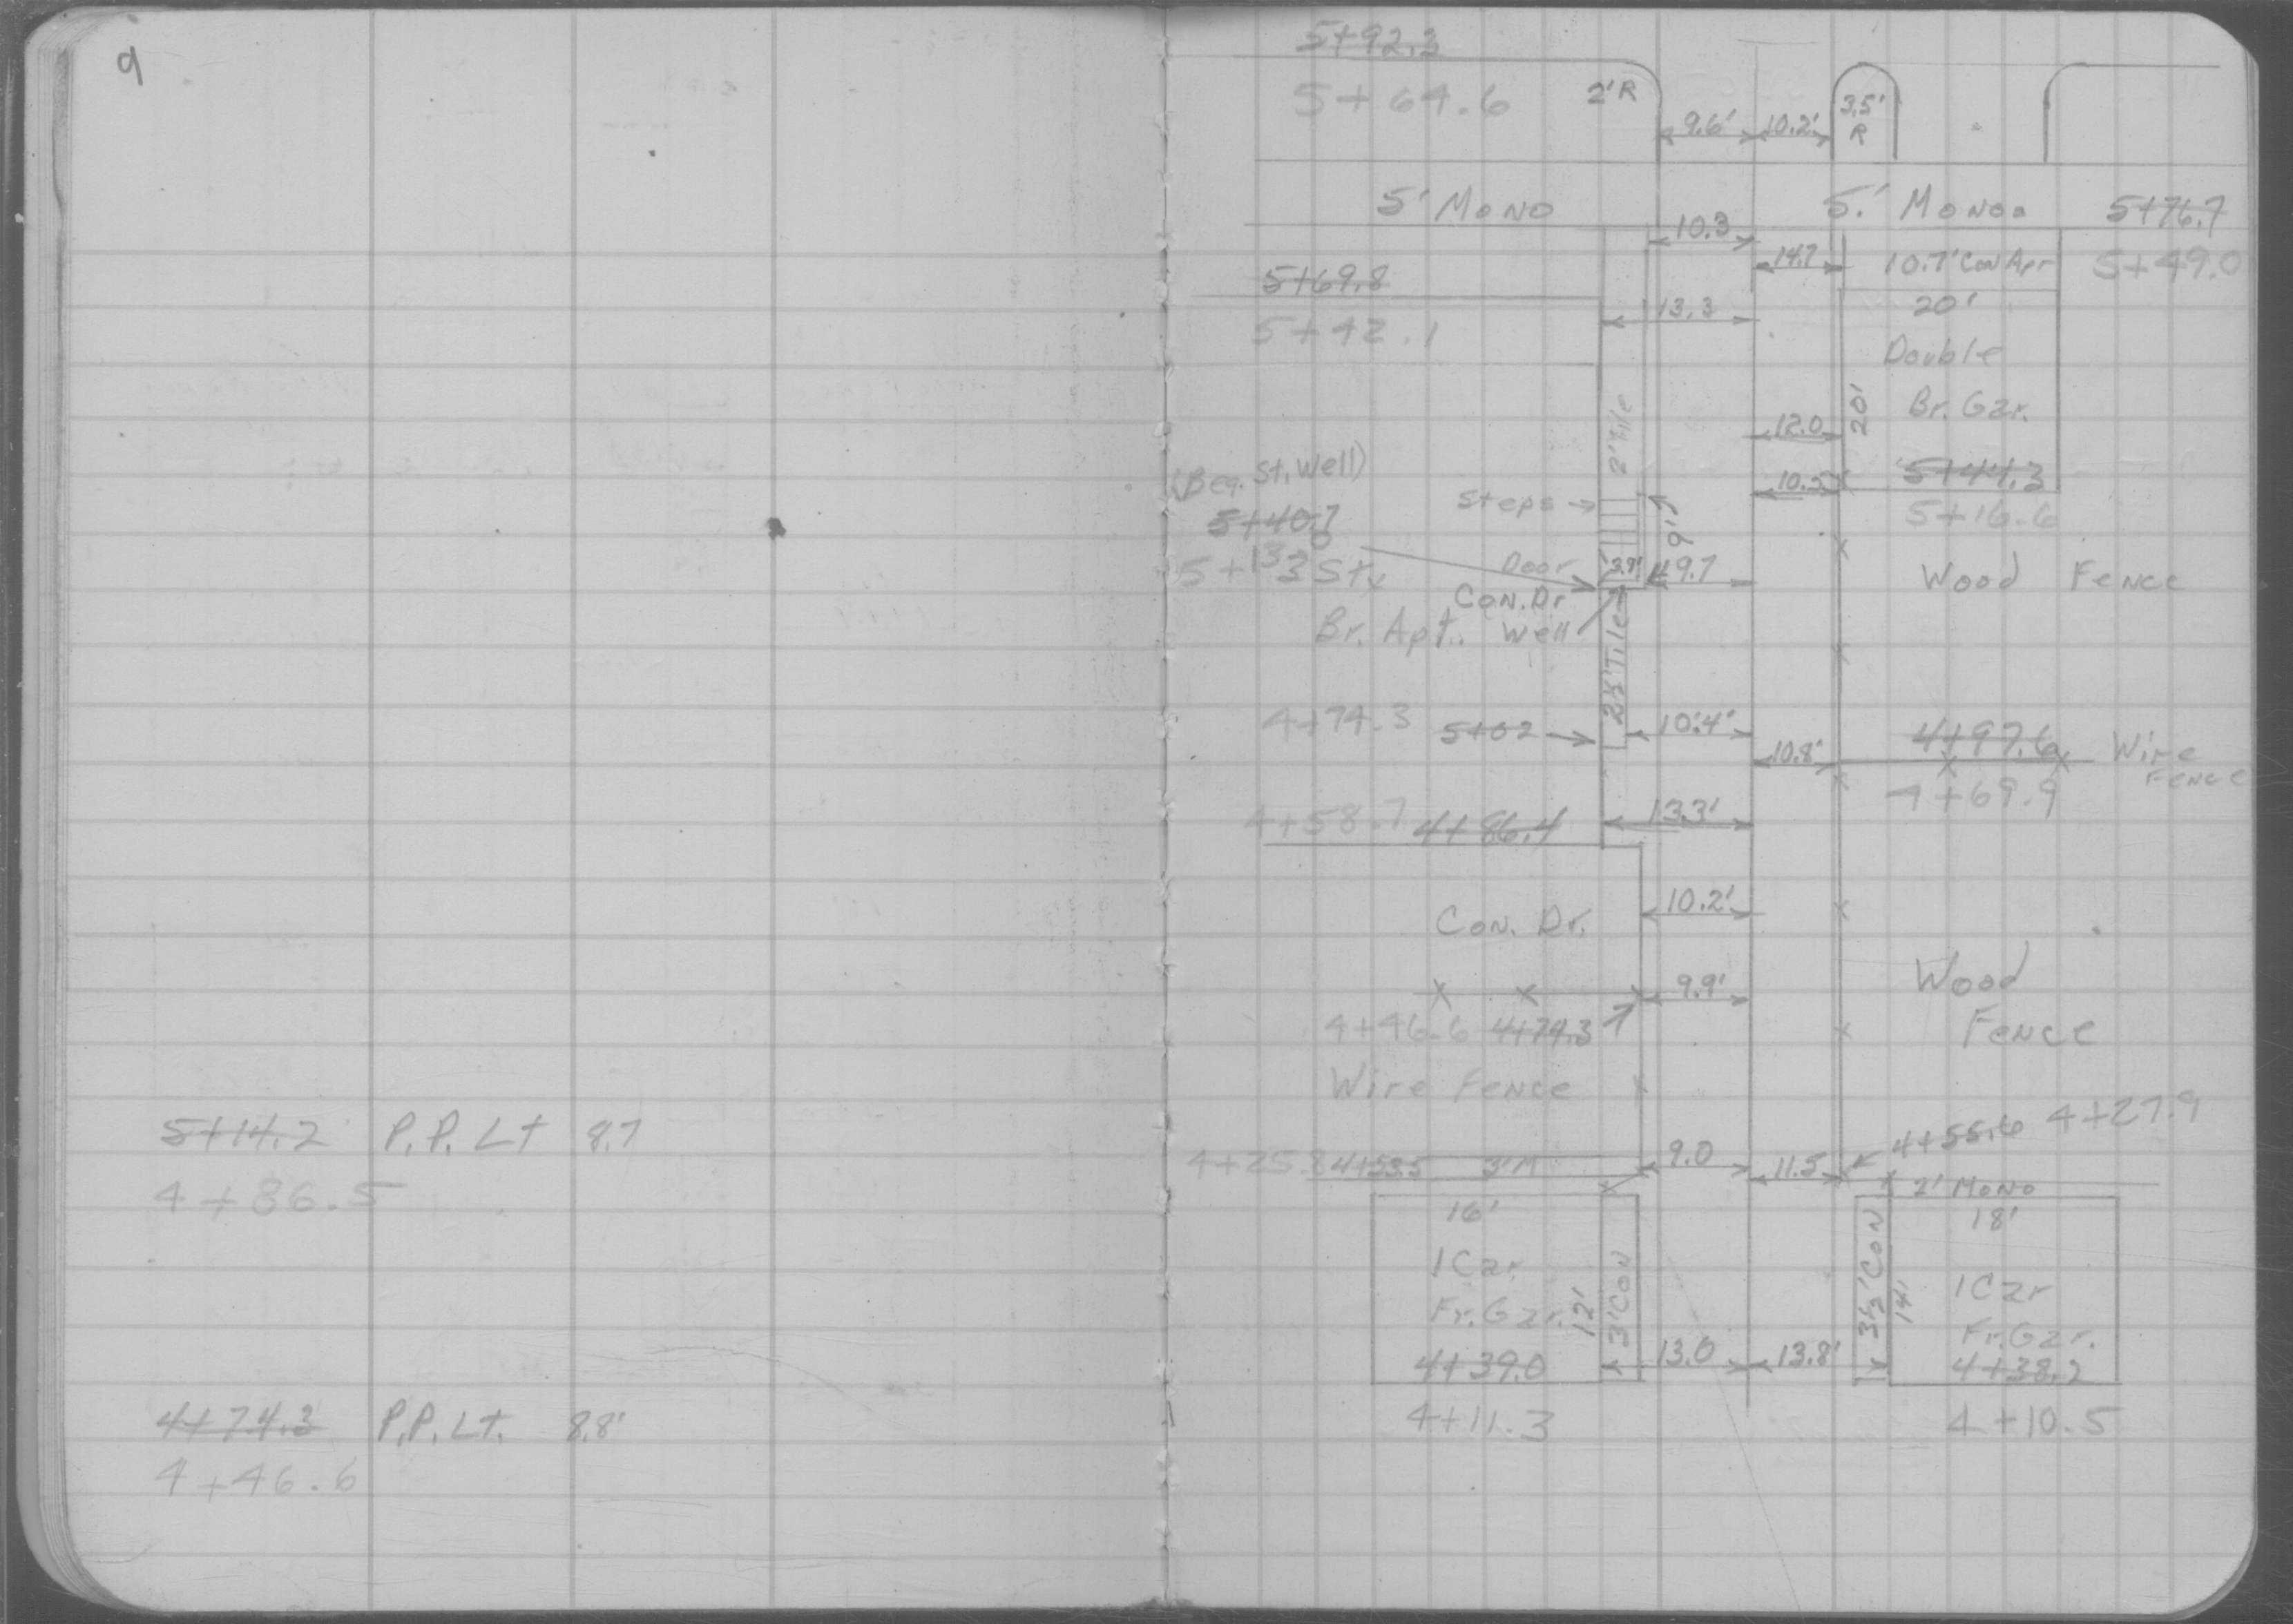 9
5+14.2 P.P. Lt 8.7
4+86.5
4+74.3 P.P. Lt. 8.8'
4+46.6
5+92.3
5+64.6 2'R 3.5'
9.6' 10.2' R
5' Mono 5.' Mono. 5+76.7
10.3
14.7 10.7' Con Apr 5+49.0
5+69.8 20'
13.3
5+42.1 Double
2' Tile 20' Br. Gar.
12.0
(Beg. St. Well) 10.5 5+44.3
Steps 5+16.6
5+40.7 9'
5+13 3 Sty Door 3.7' 9.7 Wood Fence
Con. Dr
Br. Apt. Well
Tile
4+74.3 5+02 10.4' 4+97.6 Wire
10.8' Fence
4+69.9
4+58.7 4+86.4 13.3'
Con. Dr. 10.2'
9.9' Wood
4+46.6 4+74.3 Fence
Wire Fence
4+55.6 4+27.9
4+25.8 4+53.5 3'M 9.0 11.5
2' Mono
16' 18'
1 Car 3' Con 3½' Con 1 Car
Fr. Gar. 12' 14' Fr. Gar.
4+39.0 13.0 13.8' 4+38.2
4+11.3 4+10.5